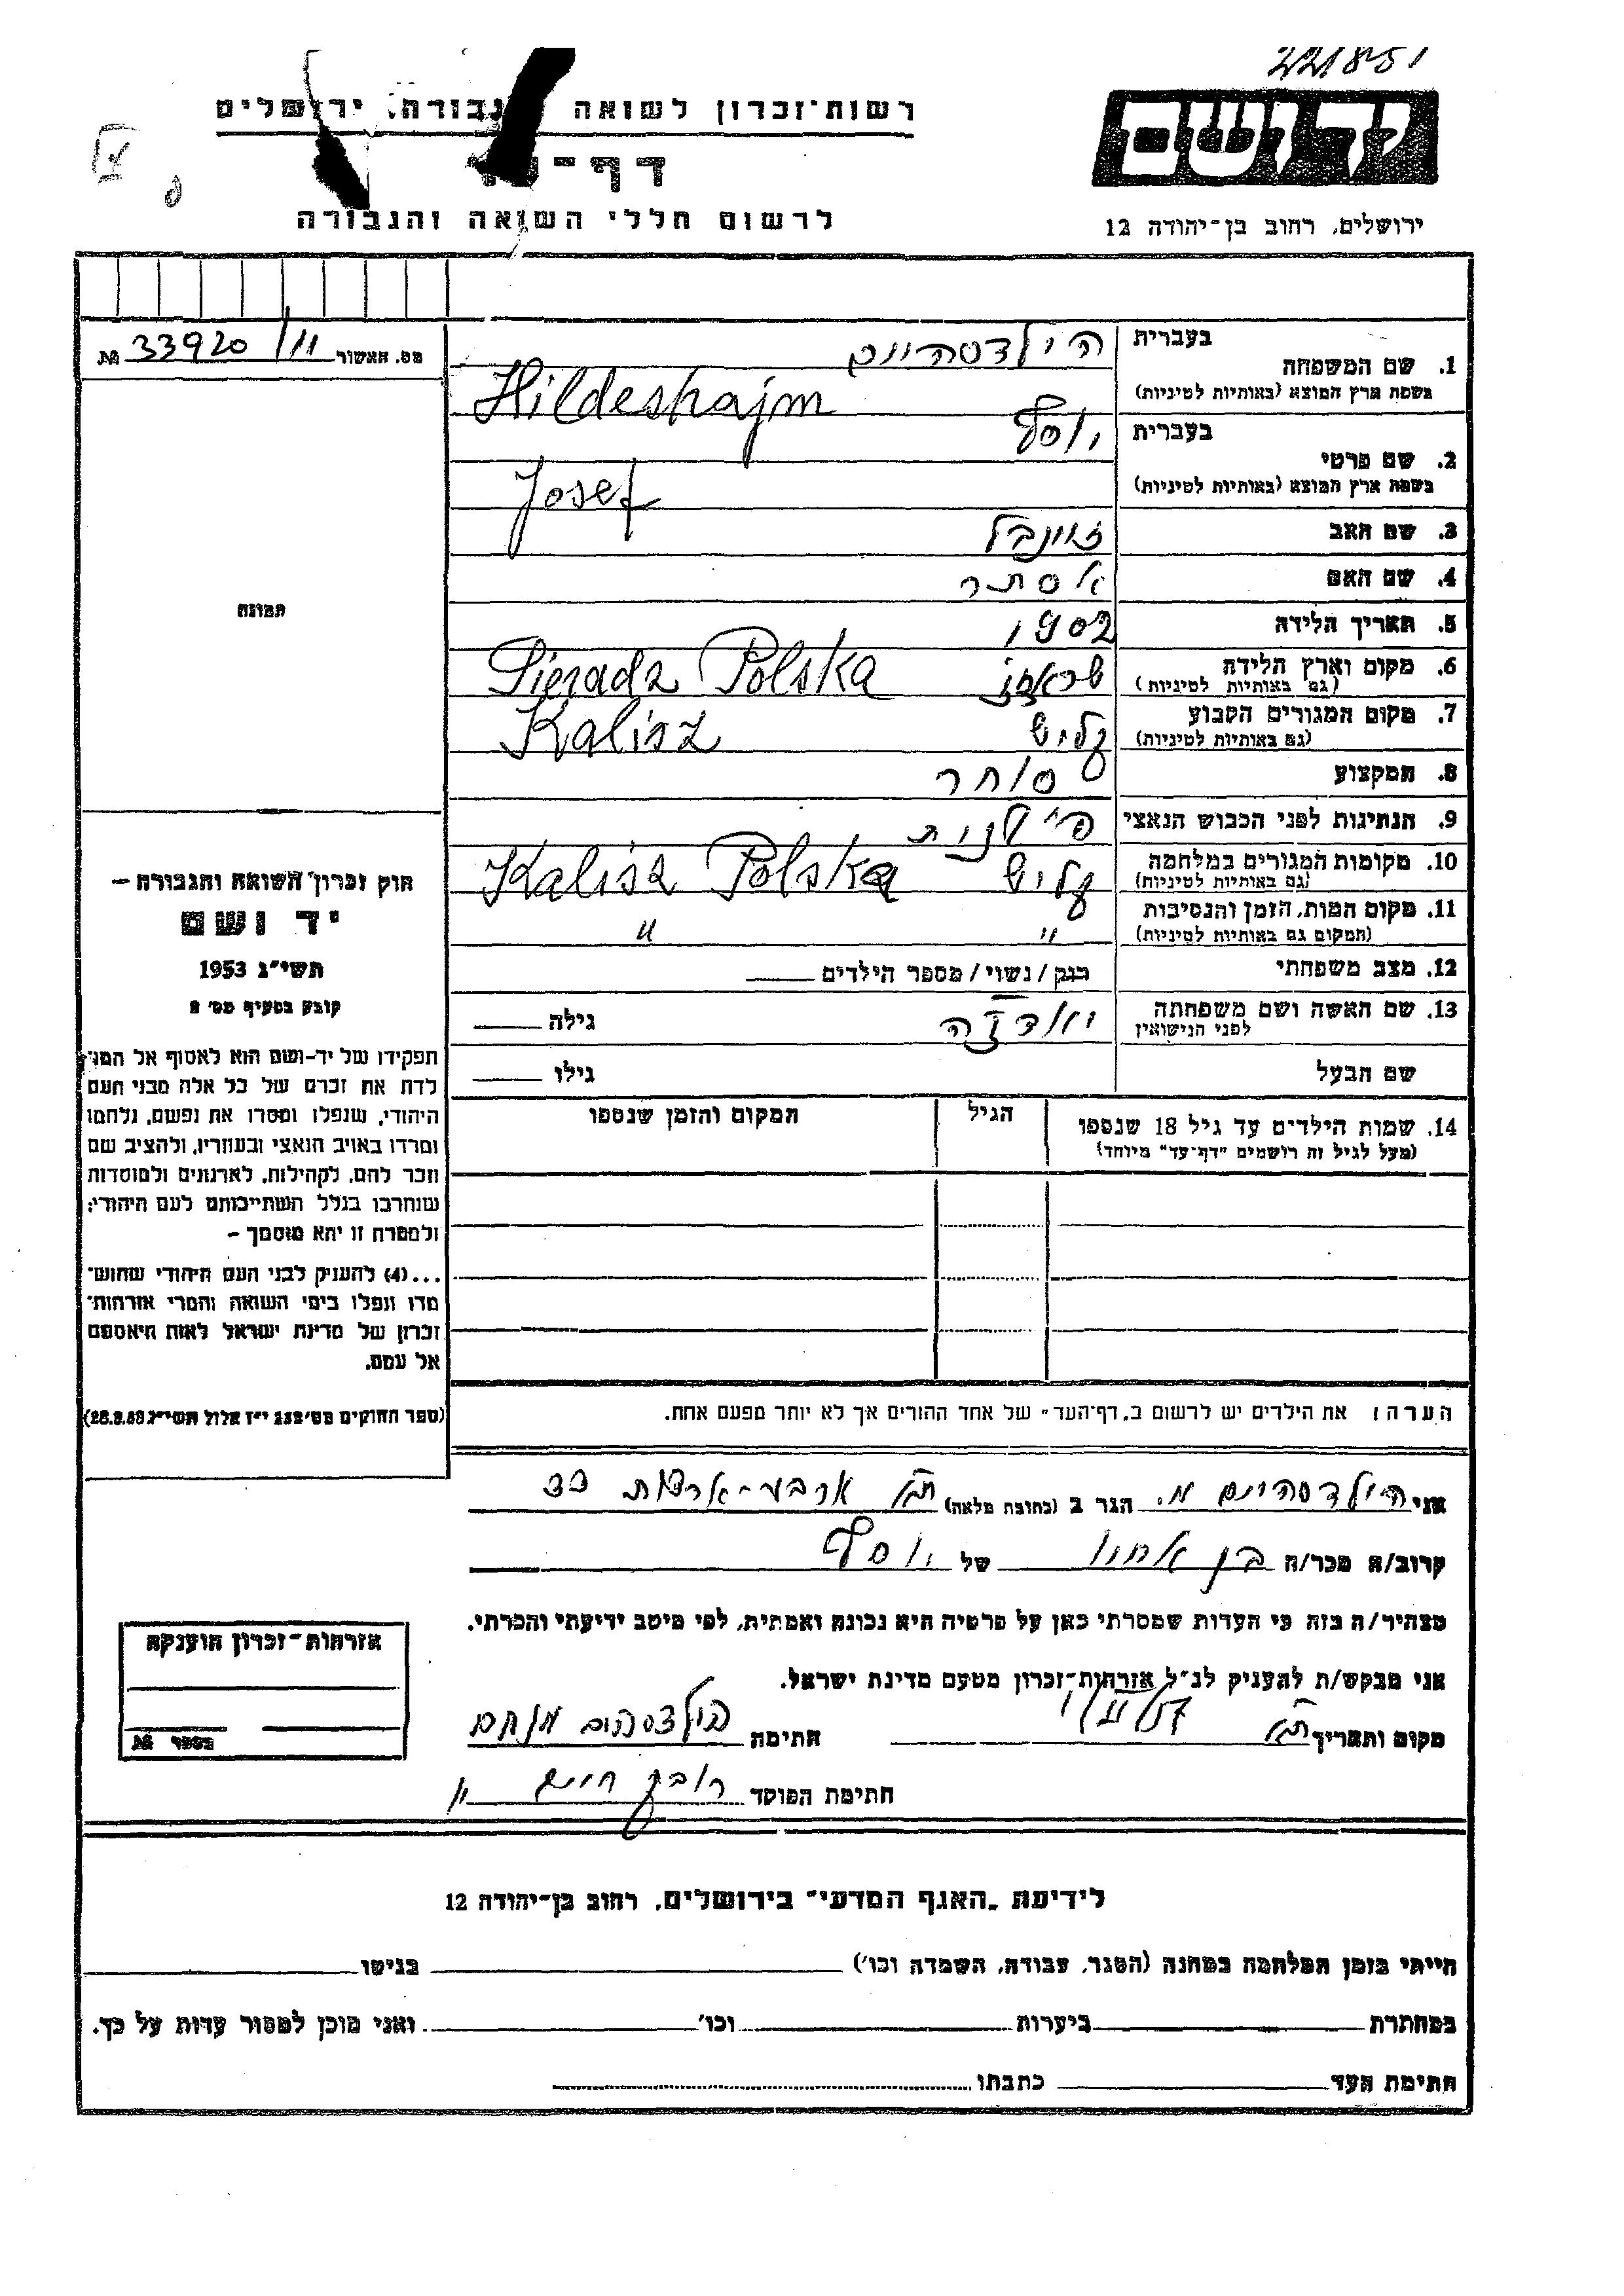 221851
רשות־זכרון לשואה ולגבורה, ירושלים
יד ושם
דף־
לרשום חללי השואה והגבורה
ירושלים, רחוב בן־יהודה 12
מס. האשור 33920/11 №
תמונה
חוק זכרון השואה והגבורה –
יד ושם
תשי״ג 1953
קובע בסעיף מס׳ 2
תפקידו של יד-ושם הוא לאסוף אל המו־
לדת את זכרם של כל אלה מבני העם
היהודי, שנפלו ומסרו את נפשם, נלחמו
ומרדו באויב הנאצי ובעוזריו, ולהציב שם
וזכר להם, לקהילות, לארגונים ולמוסדות
שנחרבו בגלל השתייכותם לעם היהודי;
ולמטרה זו יהא מוסמך –
...(4) להעניק לבני העם היהודי שהוש־
מדו ונפלו בימי השואה והמרי אזרחות־
זכרון של מדינת ישראל לאות היאספם
אל עמם.
(ספר החוקים מס׳ 132 י״ז אלול תשי״ג 28.8.53)
בעברית הילדסהיים
1. שם המשפחה
בשפת ארץ המוצא (באותיות לטיניות) Hildeshajm
בעברית יוסף
2. שם פרטי
בשפת ארץ המוצא (באותיות לטיניות) Josef
3. שם האב
4. שם האם אסתר
5. תאריך הלידה 1902
6. מקום וארץ הלידה Sieradz Polska
(גם באותיות לטיניות)
7. מקום המגורים הקבוע קליש Kalisz
(גם באותיות לטיניות)
8. המקצוע סוחר
9. הנתינות לפני הכבוש הנאצי פולנית
10. מקומות המגורים במלחמה קליש Kalisz Polska
(גם באותיות לטיניות)
11. מקום המות, הזמן והנסיבות " "
(המקום גם באותיות לטיניות)
12. מצב משפחתי רווק / נשוי / מספר הילדים
13. שם האשה ושם משפחתה גילה
לפני הנישואין
שם הבעל גילו
14. שמות הילדים עד גיל 18 שנספו הגיל המקום והזמן שנספו
(מעל לגיל זה רושמים "דף־עד" מיוחד)
הערה: את הילדים יש לרשום ב„דף־העד" של אחד ההורים אך לא יותר מפעם אחת.
אני הילדסהיים מ. הגר ב (כתובת מלאה) ת״א ארבע-ארצות 33
קרוב/ה מכר/ה בן אחיו של יוסף
מצהיר/ה בזה כי העדות שמסרתי כאן על פרטיה היא נכונה ואמתית, לפי מיטב ידיעתי והכרתי.
אני מבקש/ת להעניק לנ״ל אזרחות־זכרון מטעם מדינת ישראל.
מקום ותאריך ת״א חתימה הילדסהים מנחם
חתימת הפוקד
אזרחות־זכרון הוענקה
בספר №
לידיעת „האגף המדעי" בירושלים, רחוב בן־יהודה 12
הייתי בזמן המלחמה במחנה (הסגר, עבודה, השמדה וכו׳) בגיטו
במחתרת ביערות וכו׳ ואני מוכן למסור עדות על כך.
חתימת העד כתבתו